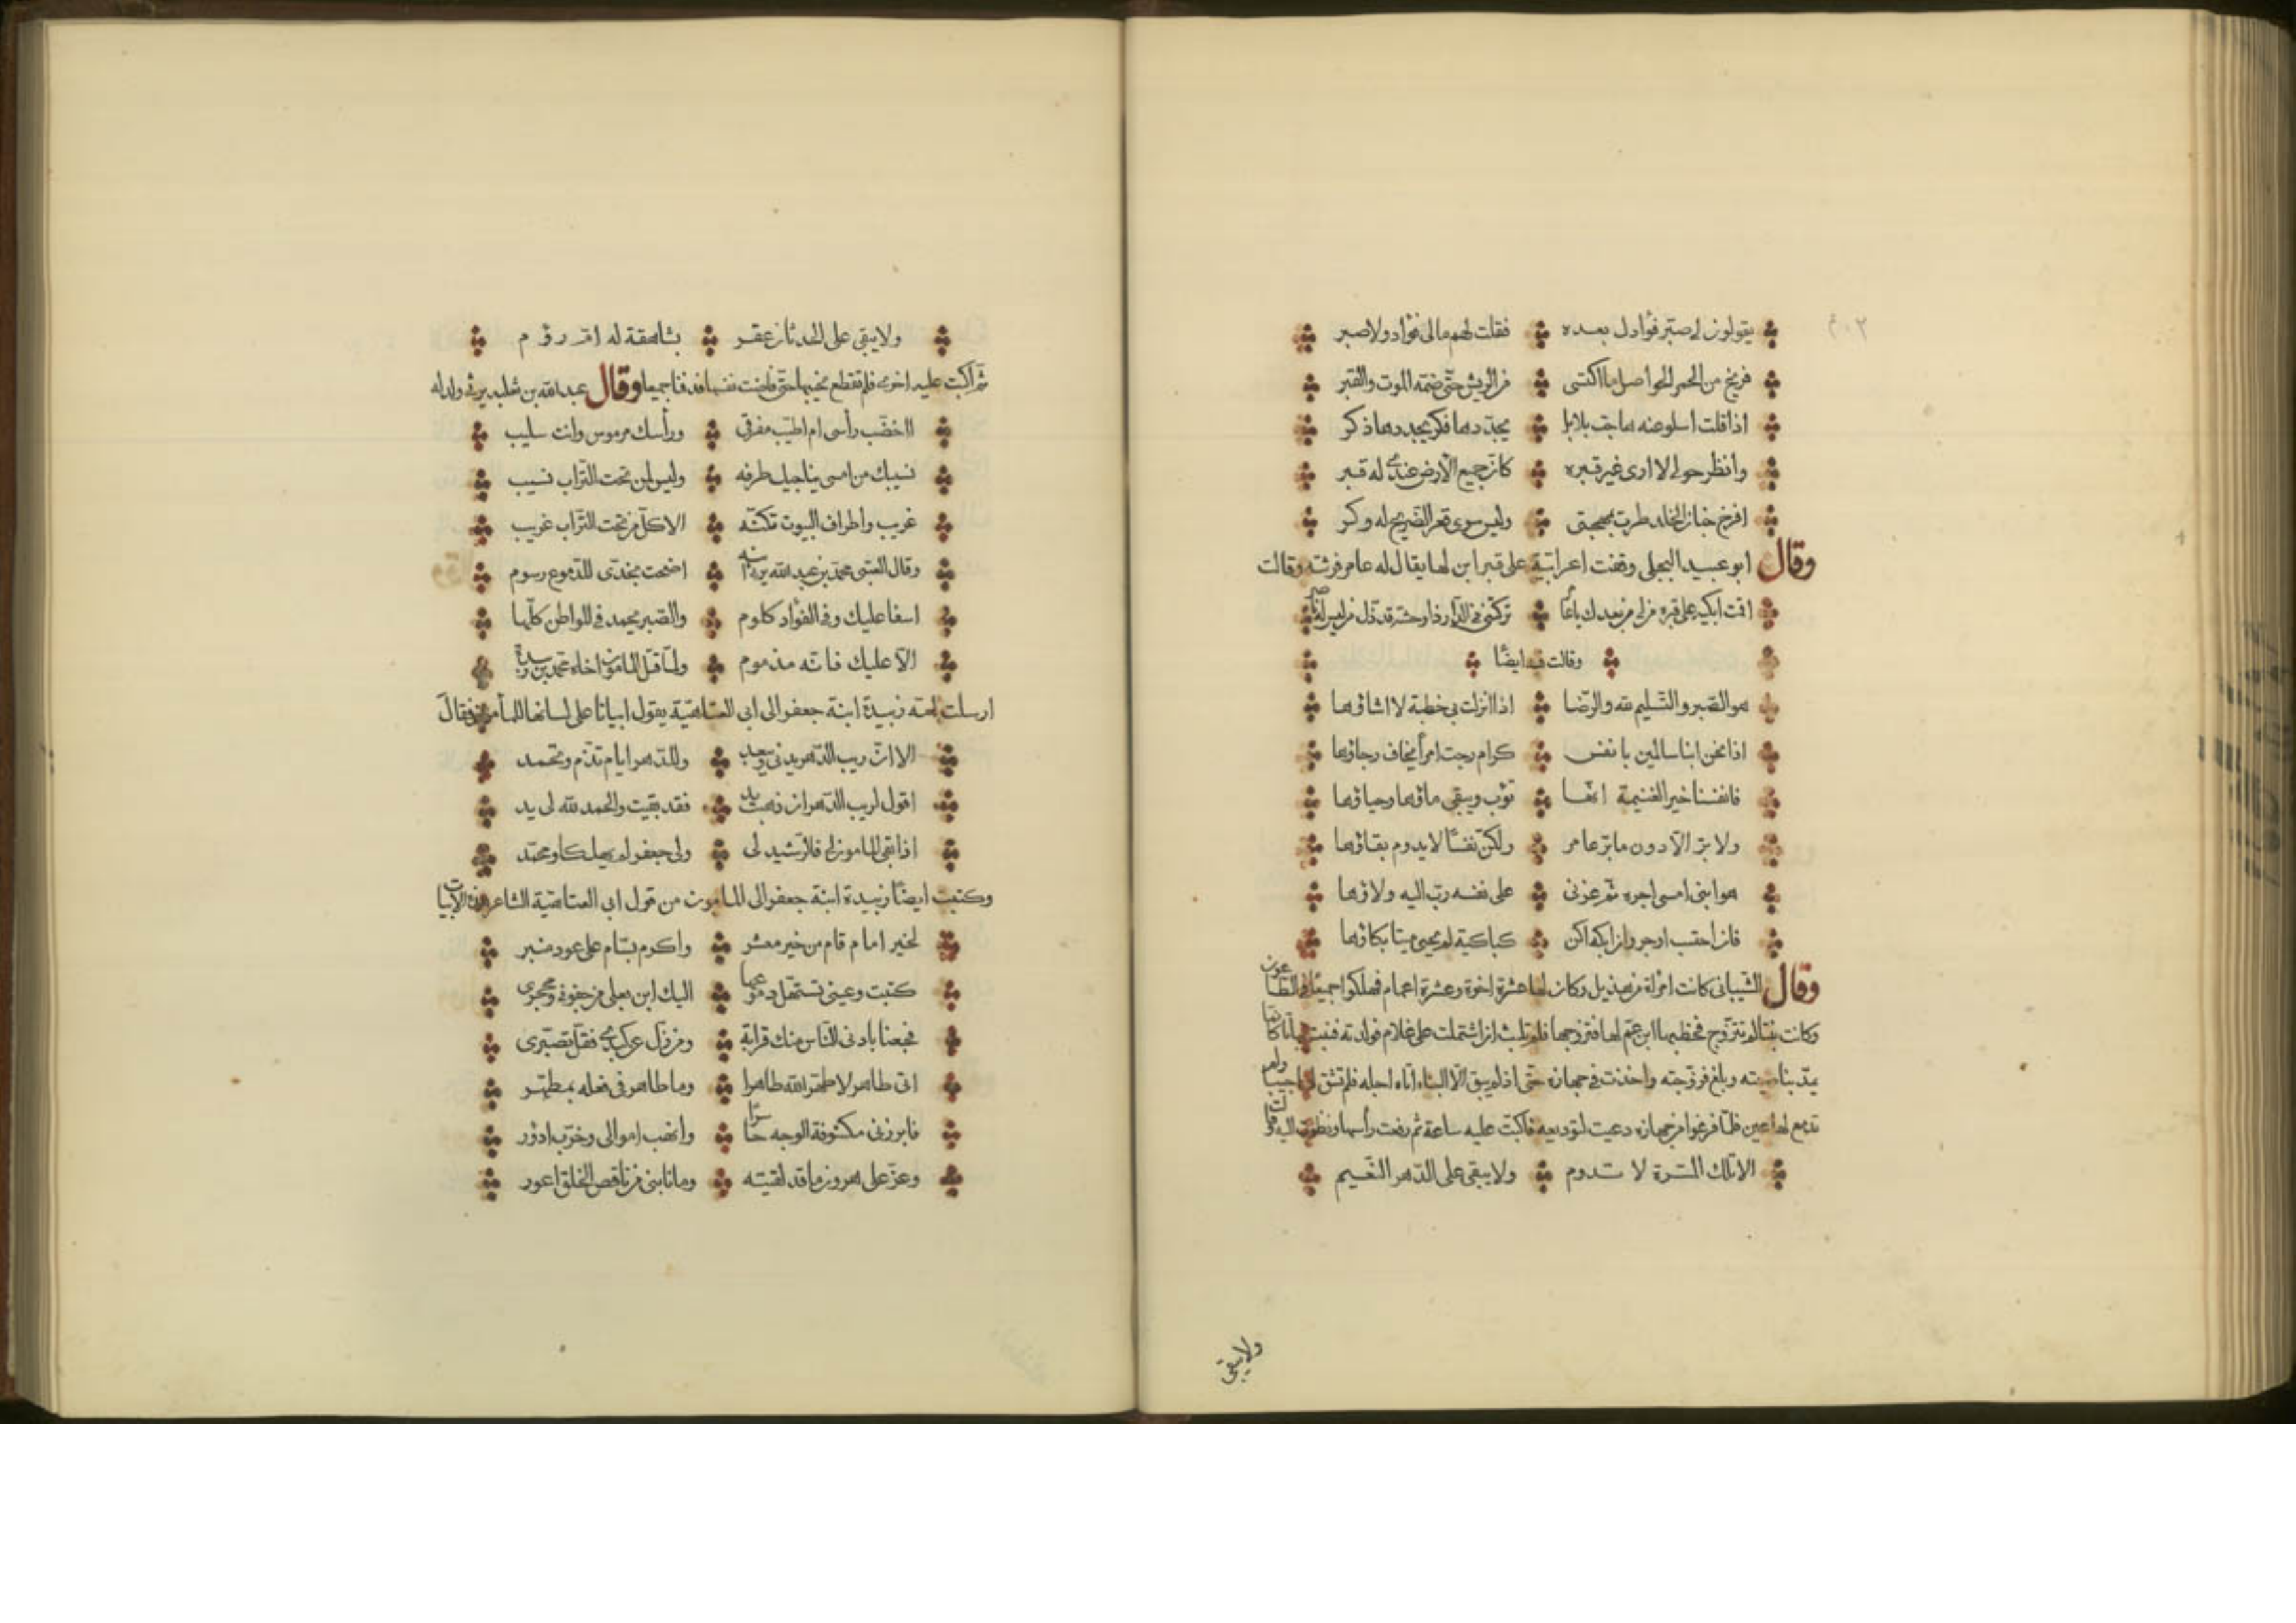 ٢٠٣
يقولون لي صبّر فؤادك بعده فقلت لهم مالي فؤاد ولا صبر
فريخ من الحمر الحواصل ما اكتسى من الريش حتّى ضمّه الموت والقبر
اذا قلت اسلو عنه هاجت بلابل يجدّدها فكر يجددها ذكر
وانظر حولي لا ارى غير قبره كانّ جميع الارض عندي له قبر
افرخ جنان الخلد طرت بمهجتى وليس سوى قعر الضريح له وكر
وقال ابو عبيد البجلى وقفت اعرابيّة على قبر ابن لها يقال له عامر فرثته وقالت
اقمت ابكيه على قبره من لى من بعدك يا عامر تركتني في الدّار ذا وحشة قد ذلّ من ليس له ناصر
وقالت فيه ايضًا
هو الصّبر والتّسليم لله والرّضا اذا نزلت بى خطبة لا اشاؤها
اذا نحن ابنا سالمين بانفس كرام رجت امرأ يخاف رجاؤها
فانفسنا خير الغنيمة انّها تؤب ويبقى ماؤها وحياؤها
ولا برّ الّا دون ما برّ عامر ولكنّ نفسًا لا يدوم بقاؤها
هو ابنى امسى اجره ثمّ عزنى على نفسه ربّ اليه ولاؤها
فان احتسب اوجر وان ابكه اكن كباكية لم يحيى ميتا بكاؤها
وقال الشّيبانى كانت امرأة من هذيل وكان لها عشرة اخوة وعشرة اعمام فهلكوا جميعًا في الطّاعون
وكانت بنتا لم تتزوّج فخطبها ابن عمّ لها فتزوجها فلم تلبث ان اشتملت على غلام فولدته فنبت نباتا كانّما
يمدّ بناصيته وبلغ فزوّجته واخذت في جهازه حتّى اذا لم يبق الّا البناء اتاه اجله فلم تشق لها جيبا ولم
تدمع لها عين فلمّا فرغوا من جهازه دعيت لتوديعه فاكبّت عليه ساعة ثم رفعت رأسها ونظرت اليه وقالت
الا تلك المسّرة لا تدوم ولا يبقى على الدّهر النّعيم
ولا يبقى
ولا يبقى على الحدثان عقر بشاهقة له امّ رؤم
ثمّ اكبّت عليه اخرى فلم تقطع نحيبها حتّى فاضت نفسها فدفنا جميعا وقال عبد الله بن ثعلبه يرثى ولدا له
ااخضّب رأسى ام اطيّب مفرقي ورأسك مرموس وانت سليب
نسيبك من امسى يناجيك طرفه وليس لمن تحت التّراب نسيب
غريب واطراف البيوت تكنّه الا كلّ من تحت التّراب غريب
وقال العتبى محمّد بن عبد الله يرثى ابنه اضحت بخدّى للدّموع رسوم
اسفا عليك وفي الفؤاد كلوم والصّبر يحمد في المواطن كلّها
الّا عليك فانّه مذموم ولمّا قتل المامون اخاه محمّد بن زبيدة
ارسلت امّه زبيدة ابنة جعفر الى ابى العتاهيّة يقول ابياتا على لسانها للمأمون فقال
الا انّ ريب الدّهر يدنى ويبعد وللدّهر ايام تذّم وتحمد
اقول لريب الدّهر ان ذهبت يد فقد بقيت والحمد لله لى يد
اذا بقى المامون لى فالرّشيد لى ولى جعفر لم يهلكا ومحمّد
وكتبت ايضًا زبيدة ابنة جعفر الى المامون من قول ابى العتاهيّة الشاعر هذه الابيات
لخير امام قام من خير معشر واكرم بسّام على عود منبر
كتبت وعينى تستهلّ دموعها اليك ابن يعلى من جفونى ومحجرى
فجعنا بادنى النّاس منك قرابة ومن زلّ عن كبدى فقلّ تصبّرى
اتى طاهر لا طهّر الله طاهرا وما طاهر في فعله بمطهّر
فابرزنى مكشوفة الوجه حاسرًا وانهب اموالى وخرّب ادؤر
وعزّ على هرون ما قد لقيته وما نابنى من ناقص الخلق اعور